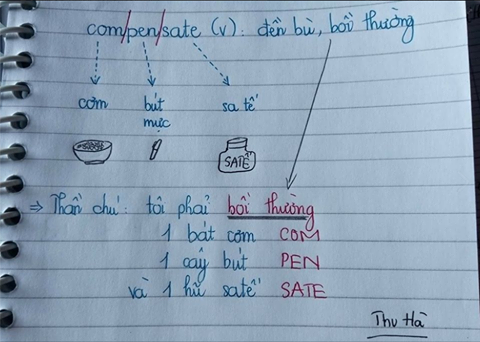 com/pen/sate (v): đền bù, bồi thường
cơm bút sa tế
mực
SATẾ
⇒ Thần chú: tôi phải bồi thường
1 bát cơm COM
1 cây bút PEN
và 1 hũ satế SATE
Thu Hà